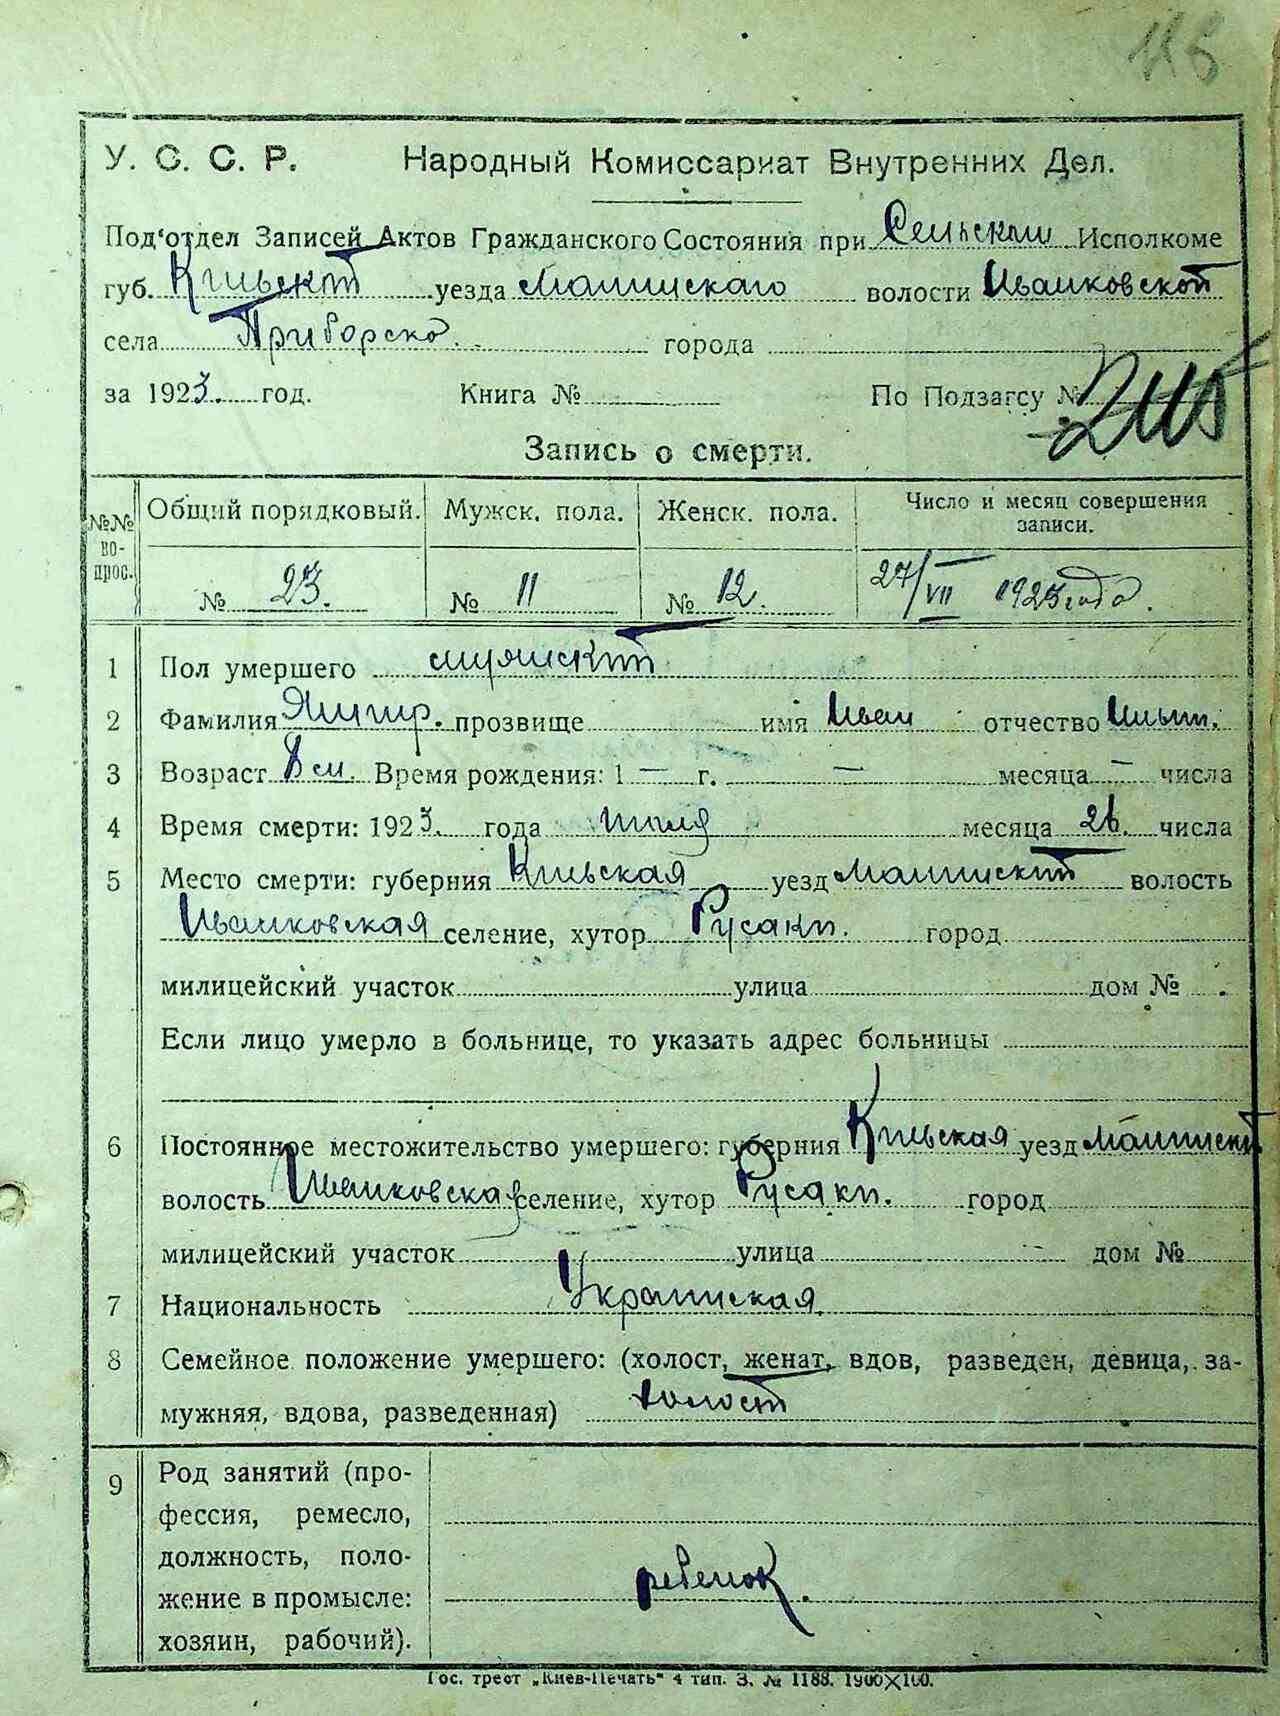 У. С. С. Р. Народный Комиссариат Внутренних Дел.
Под'отдел Записей Актов Гражданского Состояния при Сельском Исполкоме
губ. Киевской уезда Малинскаго волости Иванковской
села Приборско города
за 1923. год. Книга № По Подзагсу №
Запись о смерти.
№№ вопрос. Общий порядковый. Мужск. пола. Женск. пола. Число и месяц совершения записи.
№ 23. № 11 № 12. 27/VII 1923 года.
1 Пол умершего мужской
2 Фамилия прозвище имя Иван отчество
3 Возраст 8 м. Время рождения: 1 — г. — месяца — числа
4 Время смерти: 1923. года июля месяца 26. числа
5 Место смерти: губерния Киевская уезд Малинской волость
Иванковская селение, хутор Русаки. город
милицейский участок улица дом №
Если лицо умерло в больнице, то указать адрес больницы
6 Постоянное местожительство умершего: губерния Киевская уезд Малинской
волость Иванковская селение, хутор Русаки. город
милицейский участок улица дом №
7 Национальность Украинская
8 Семейное положение умершего: (холост, женат, вдов, разведен, девица, за-
мужняя, вдова, разведенная) холост
9 Род занятий (про-
фессия, ремесло,
должность, поло-
жение в промысле: ребенок.
хозяин, рабочий).
Гос. трест „Киев-Печать" 4 тип. З. № 1188. 1900×100.